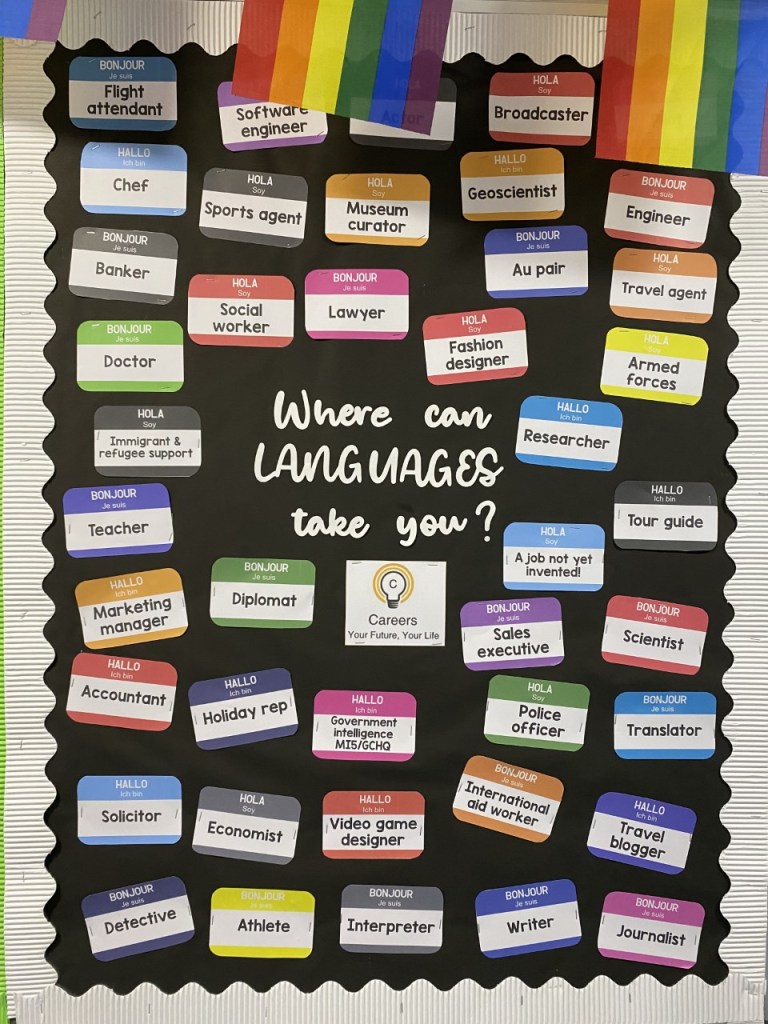 BONJOUR
Je suis
Flight
attendant
Software
engineer
Actor
HOLA
Soy
Broadcaster
HALLO
Ich bin
Chef
HOLA
Soy
Sports agent
HOLA
Soy
Museum
curator
HALLO
Ich bin
Geoscientist
BONJOUR
Je suis
Engineer
BONJOUR
Je suis
Banker
HOLA
Soy
Social
worker
BONJOUR
Je suis
Lawyer
BONJOUR
Je suis
Au pair
HOLA
Soy
Travel agent
BONJOUR
Je suis
Doctor
HOLA
Soy
Fashion
designer
HOLA
Soy
Armed
forces
HOLA
Soy
Immigrant &
refugee support
Where can
LANGUAGES
take you?
HALLO
Ich bin
Researcher
BONJOUR
Je suis
Teacher
HALLO
Ich bin
Tour guide
HOLA
Soy
A job not yet
invented!
HALLO
Ich bin
Marketing
manager
BONJOUR
Je suis
Diplomat
C
Careers
Your Future, Your Life
BONJOUR
Je suis
Sales
executive
BONJOUR
Je suis
Scientist
HALLO
Ich bin
Accountant
HALLO
Ich bin
Holiday rep
HALLO
Ich bin
Government
intelligence
MI5/GCHQ
HOLA
Soy
Police
officer
BONJOUR
Je suis
Translator
HALLO
Ich bin
Solicitor
HOLA
Soy
Economist
HALLO
Ich bin
Video game
designer
BONJOUR
Je suis
International
aid worker
HALLO
Ich bin
Travel
blogger
BONJOUR
Je suis
Detective
BONJOUR
Je suis
Athlete
BONJOUR
Je suis
Interpreter
BONJOUR
Je suis
Writer
BONJOUR
Je suis
Journalist